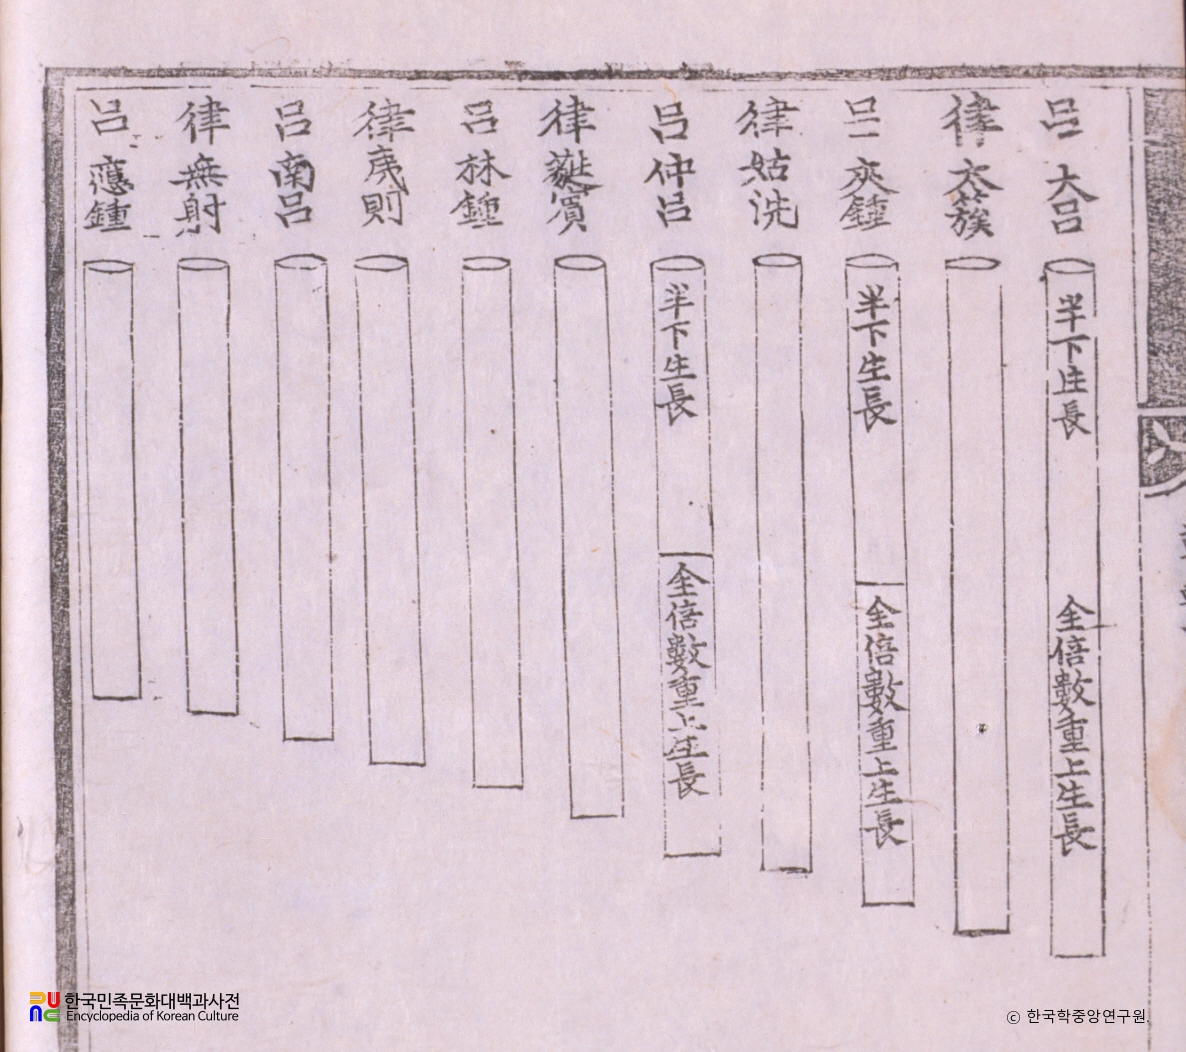 呂 大呂
半下生長
全倍數重上生長
律 太簇
呂 夾鍾
半下生長
全倍數重上生長
律 姑洗
呂 仲呂
半下生長
全倍數重上生長
律 蕤賓
呂 林鍾
律 夷則
呂 南呂
律 無射
呂 應鍾
한국민족문화대백과사전
Encyclopedia of Korean Culture
ⓒ 한국학중앙연구원.